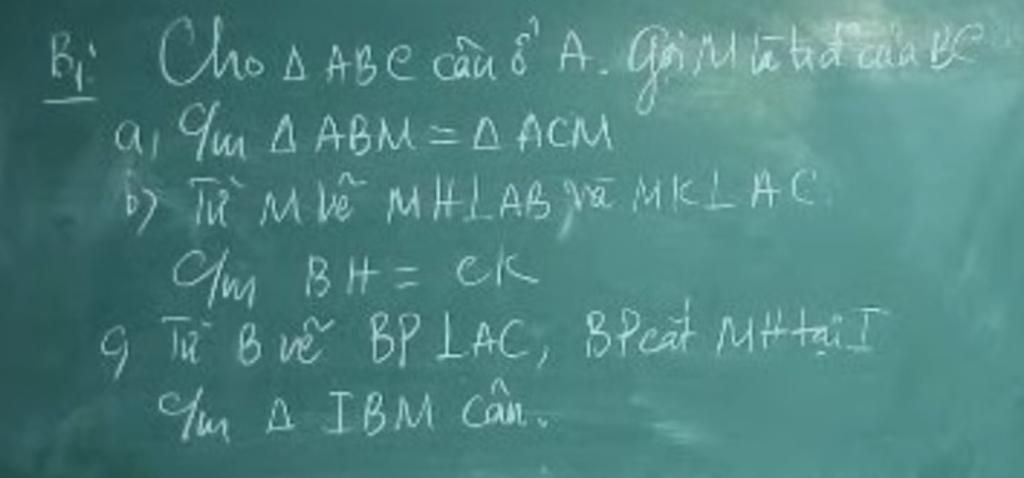 B1: Cho Δ ABC cân ở A. Gọi M là trđ của BC
a, Cm Δ ABM = Δ ACM
b) Từ M vẽ MH⊥AB và MK⊥AC
Cm BH = CK
c) Từ B vẽ BP⊥AC, BP cắt MH tại I
Cm Δ IBM cân.